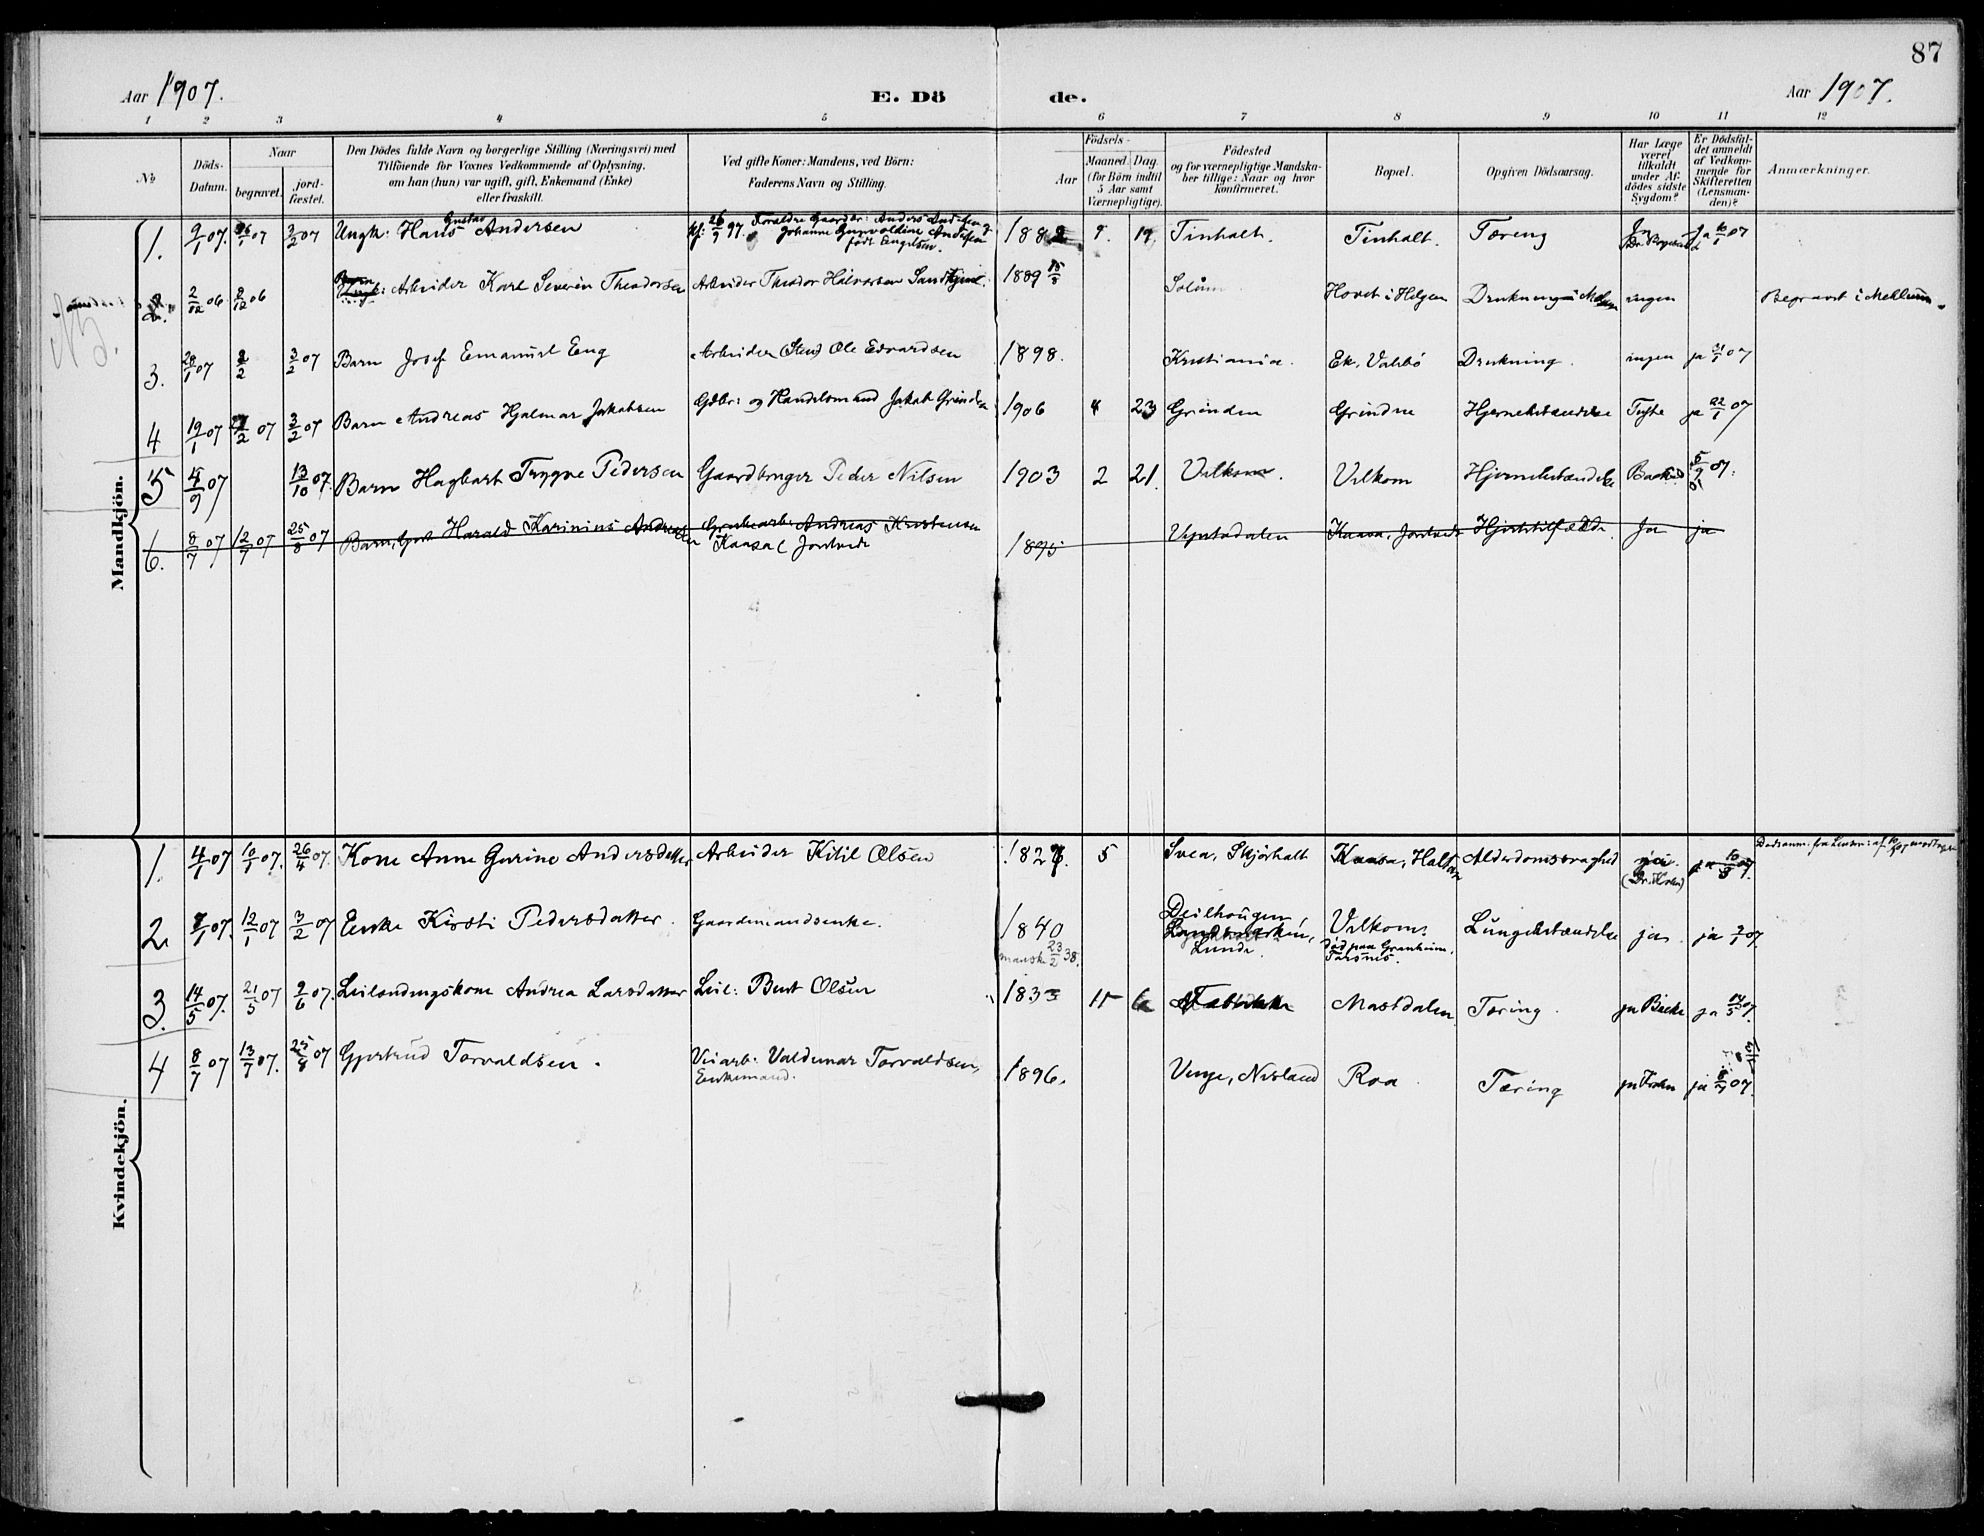 87
Aar 1907.
E. Dö de.
Aar 1907.
1 2 3 4 5 6 7 8 9 10 11 12
No
Döds-Datum.
Naar
begravet.
jord-fæstet.
Den Dödes fulde Navn og borgerlige Stilling (Næringsvei) med
Tilföiende for Voxnes Vedkommende af Oplysning,
om han (hun) var ugift, gift, Enkemand (Enke)
eller fraskilt.
Ved gifte Koner: Mandens, ved Börn:
Faderens Navn og Stilling.
Födsels-
Aar
Maaned. Dag.
(for Börn indtil
5 Aar samt
Værnepligtige).
Födested
og for værnepligtige Mandska-
ber tillige: Naar og hvor
Konfirmeret.
Bopæl.
Opgiven Dödsaarsag.
Har Læge
været
tilkaldt
under Af-
dödes sidste
Sygdom?
Er Dödsfal-
det anmeldt
af Vedkom-
mende for
Skifteretten
(Lensman-
den)?
Anmærkninger.
Mandkjön.
1. 9/1 07. 07 3/2 07 Ungk: Hans Gustav Andersen kf: 26/9 97. Forældre Gaardbr: Anders Andersen og Johanne Gunvoldine Andersen født Engelsen. 1882 9. 19. Tinholt. Tinholt. Tæring Ja Ja 10/1 07
2. 2/12 06 8/12 06 Arbeider Karl Severin Theodorsen Arbeider Theodor Halvorsen 1889 Solum Hovet i Helgen Drukning i ingen Begravet i Mehlum
3. 28/1 07 2/2 3/2 07 Barn Josef Emanuel Eng Arbeider (Sten) Ole Edvardsen 1898. Kristiania. Ek. Valebö Drukning. ingen ja 31/1 07
4 19/1 07 2/2 07 3/2 07 Barn Andreas Hjalmar Jakobsen Gdbr: og Handelsmand Jakob Grinden 1906 4 23 Grinden Grinden Hjernebetændelse Tufte ja 22/1 07
5 4/9 07 13/10 07. Barn Hagbart Trygve Pedersen Gaardbruger Peder Nilsen 1903 2 21. Velkom. Velkom Hjernebetændelse 5/9 07.
6. 8/7 07 12/7 07 25/8 07 Barn, Harald Karinius Andreassen Grubearb: Andreas Kristensen Kaasa (Jonsvedt 1895 Kaasa, Hjertetilfælde. Ja ja
Kvindekjön.
1. 4/1 07 10/1 07. 26/4 07. Kone Anne Gurine Andersdatter Arbeider Kitil Olsen 1827 5 Svea, Skjørholt Kaasa, Alderdomssvaghed (Dr. Holm) ja 07.
2. 07. 12/1 07 3/2 07 Enke Kirsti Pedersdatter. Gaardmandsenke. 1840 manske 23/2 38. Deilhougen Lunde. Velkom. død paa Granheim. Lungebetændelse ja. ja 9/1 07
3. 14/5 07. 21/5 07 2/6 07. Leilendingskone Andrea Larsdatter Leil: Bent Olsen 1833 11 6 Mastdalen. Tæring. ja ja 17/5 07.
4 8/7 07 13/7 07. 25/8 07 Gjertrud Torvaldsen. Veiarb: Valdemar Torvaldsen, Enkemand. 1896. Roa Tæring ja ja 8/7 07.